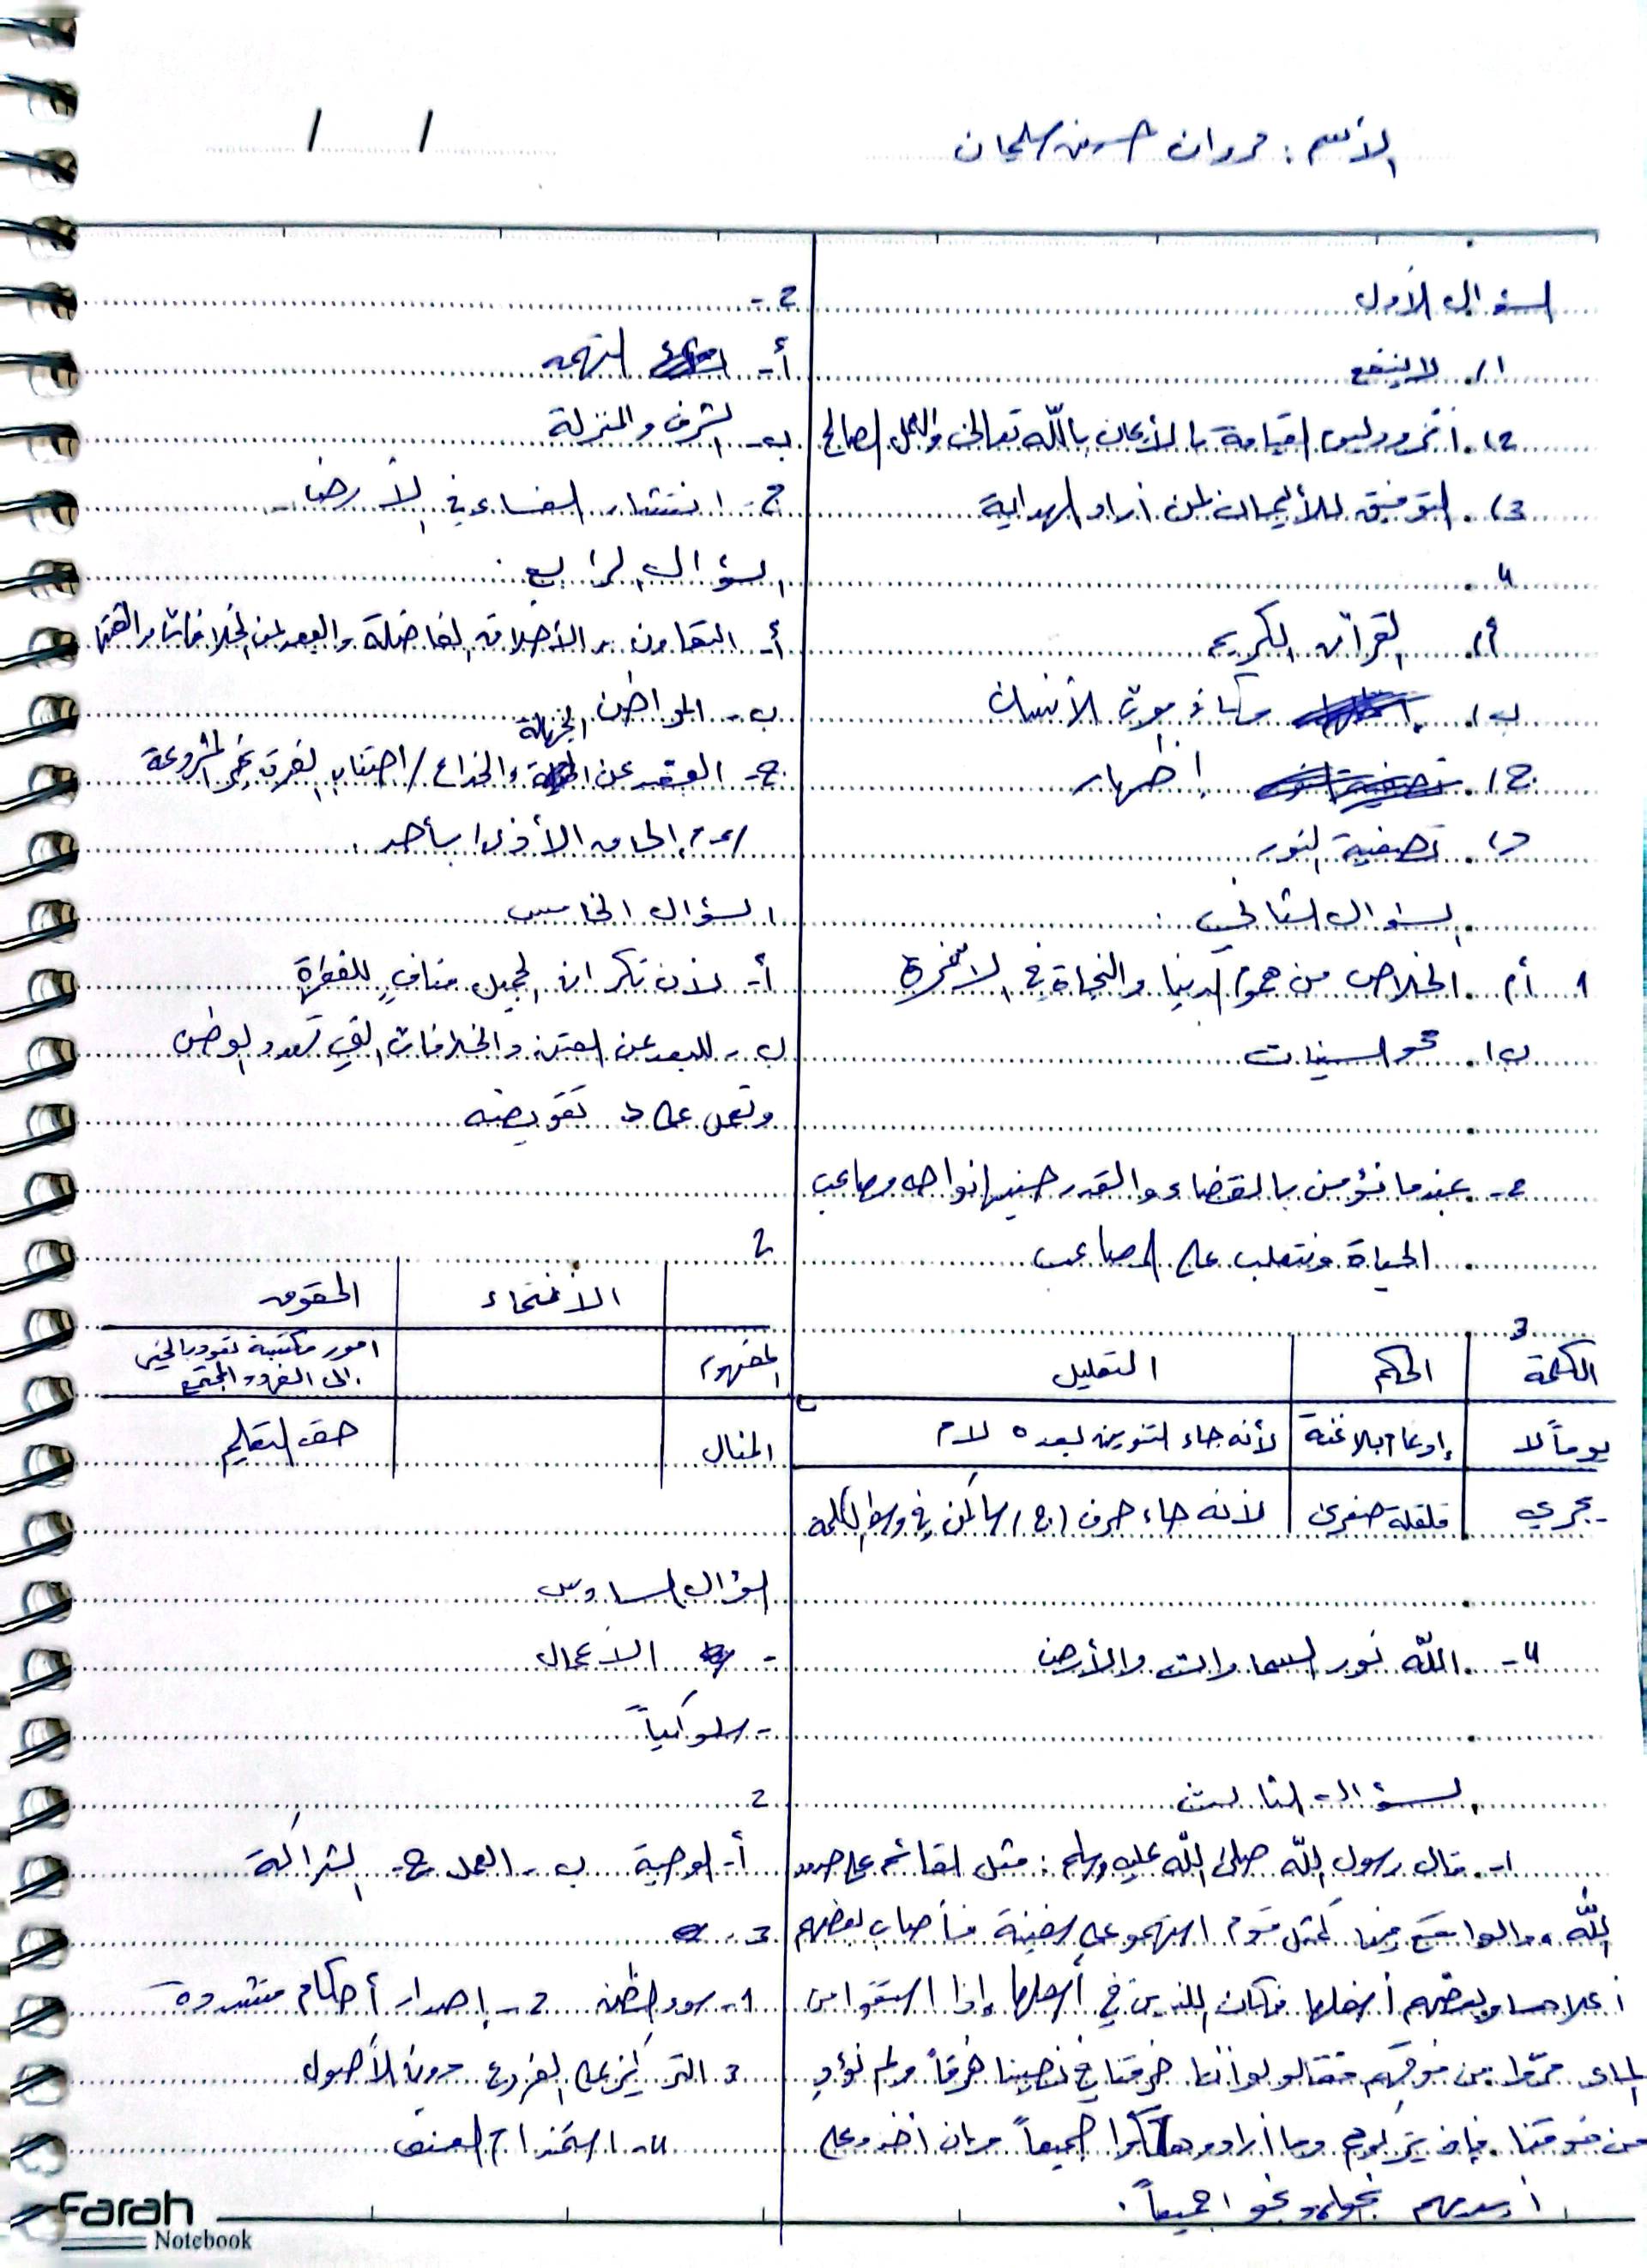 الأسم : مروان حسين سليمان
/ /
السؤال الأول
1) لا ينفع
2) التزود ليوم القيامة بالأيمان بالله تعالى والعمل الصالح
3) التوفيق للأيمان لمن أراد الهداية
4
أ) القرآن الكريم
ب) مكان موت الأنسان
ج) إظهار
د) تصفية النور
السؤال الثاني :
1 أ) الخلاص من هموم الدنيا والنجاة في الآخرة
ب) محو السيئات
2- عندما نؤمن بالقضاء والقدر حينها نواجه مصاعب
الحياة ونتغلب على المصاعب
3
الكلمة الحكم التعليل
يوماً لا إدغام بلا غنة لأنه جاء التنوين بعده لام
يجري قلقلة صغرى لأنه جاء حرف (ج) ساكن في وسط الكلمة
4- الله نور السماوات والأرض
السؤال الثالث
1- قال رسول الله صلى الله عليه وسلم : مثل القائم على حدود
الله والواقع فيها كمثل قوم استهمو على سفينة فأصاب بعضهم
أعلاها وبعضهم أسفلها فكان الذين في أسفلها إذا استقوا من
الماء مروا من فوقهم فقالو لو أننا خرقنا في نصيبنا خرقاً ولم نؤذِ
من فوقنا فإن يتركوهم وما أرادو هلكوا جميعاً وإن أخذو على
أيديهم نجوا ونجو اجميعاً .
2-
أ- التهمه
ب- الشرف والمنزلة
ج- انتشار الفساد في الأرض
السؤال الرابع :
أ- التعاون - الأخلاق الفاضلة والبعد عن الخلافات والفتن
ب- المواطن
ج- البعد عن الجهالة والخداع / اجتناب الطرق غير المشروعة
/ عدم إلحاق الأذى بأحد .
السؤال الخامس
أ- لأن نكران الجميل منافٍ للفطرة
ب- للبعد عن الفتن والخلافات التي تهدد الوطن
وتعمل على تقويضه
2
الأنتماء الحقوق
المفهوم امور مكتسبة تعود بالخير
الى الفرد والمجتمع
المثال حق التعليم
السؤال السادس
- الأعمال
- سلوكياً
2
أ- الوصية ب- العمل ج- الشراكة
3-
1- سوء الظن 2- إصدار أحكام متشددة
3 التركيز على الفروع دون الأصول
4- استخدام العنف
Farah
Notebook